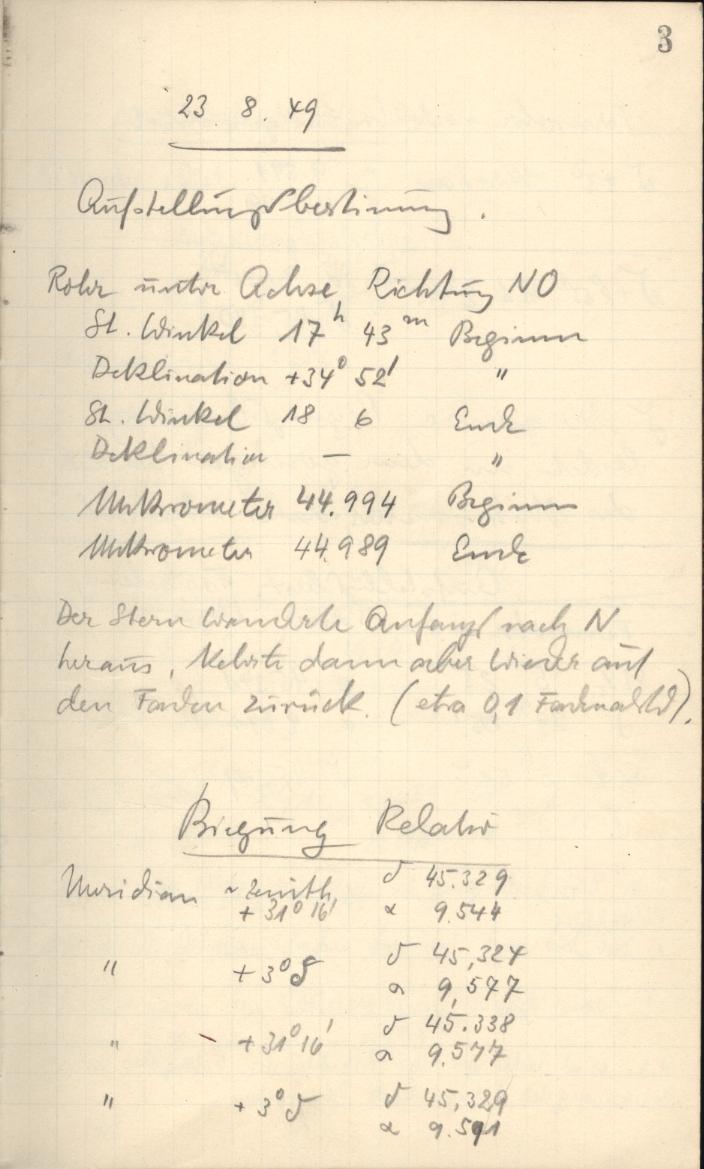 3
23 8. 49
Aufstellungsbestimung.
Rohr unter Achse, Richtung NO
St. Winkel 17h 43m Beginn
Deklination +34° 52' "
St. Winkel 18 6 Ende
Deklination — "
Mikrometer 44.994 Beginn
Mikrometer 44.989 Ende
Der Stern wanderte Anfangs nach N
heraus, kehrte dann aber wieder auf
den Faden zurück. (etwa 0,1 Fadenabstd).
Biegung Relativ
Meridian ~ Zenith δ 45.329
+ 31° 16' α 9.544
" + 3° δ δ 45,324
α 9,577
" + 31° 16' δ 45.338
α 9.577
" + 3° δ δ 45,329
α 9.591